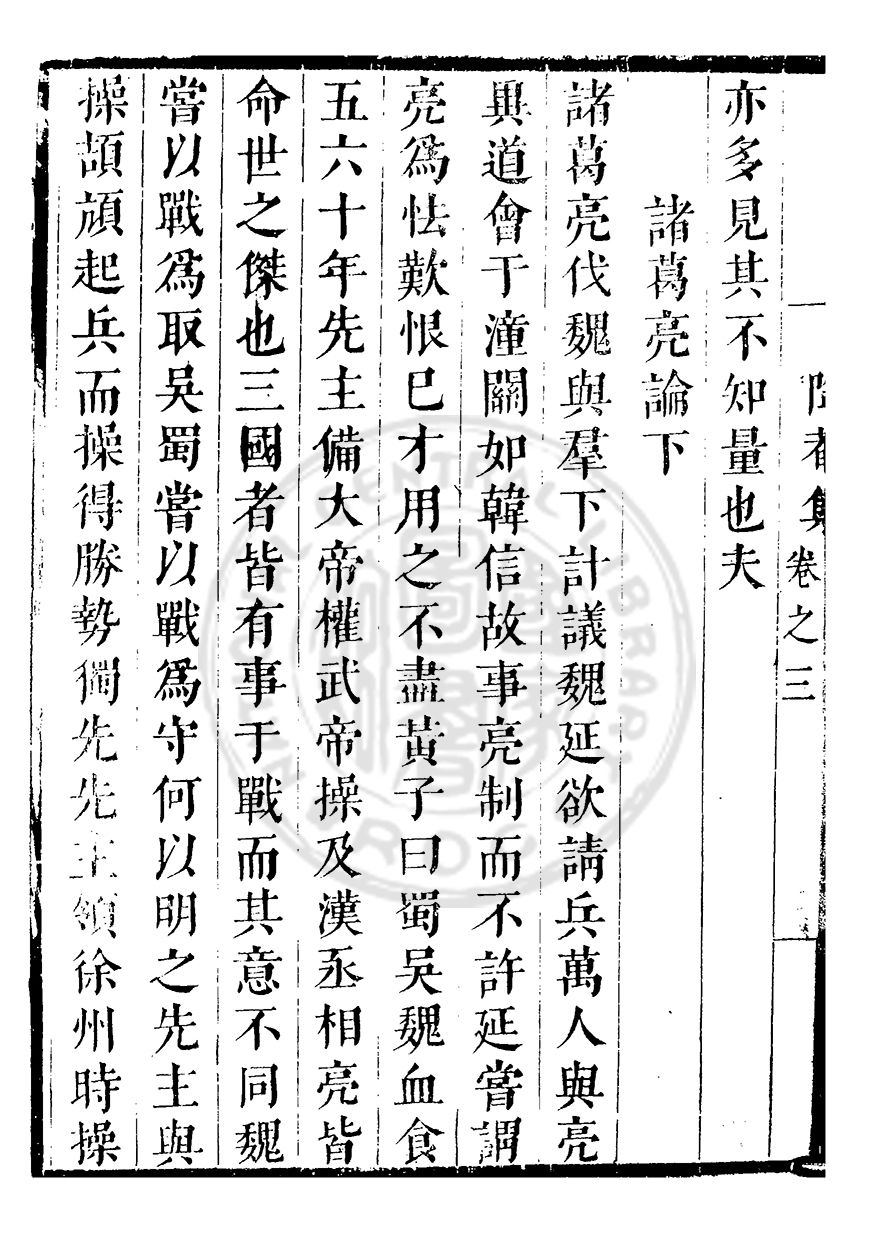 集 卷之三
亦多見其不知量也夫
諸葛亮論下
諸葛亮伐魏與羣下計議魏延欲請兵萬人與亮
異道會于潼關如韓信故事亮制而不許延嘗謂
亮爲怯歎恨已才用之不盡黃子曰蜀吳魏血食
五六十年先主備大帝權武帝操及漢丞相亮皆
命世之傑也三國者皆有事于戰而其意不同魏
嘗以戰爲取吳蜀嘗以戰爲守何以明之先主與
操頡頏起兵而操得勝勢獨先先主領徐州時操